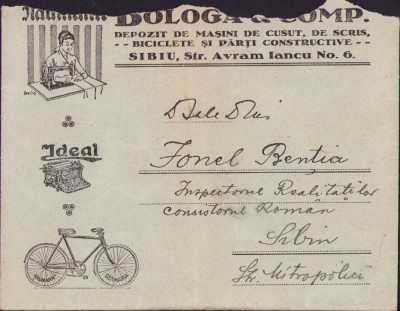 Naumann
BOLOGA & COMP.
DEPOZIT DE MAȘINI DE CUSUT, DE SCRIS,
-- BICICLETE ȘI PĂRȚI CONSTRUCTIVE --
SIBIU, Str. Avram Iancu No. 6.
Ideal
NAUMANN
GERMANIA
D Sale Dlui
Ionel Benția
Inspectorul Realităților
Consistorul Român
Sibiu
Str. Mitropoliei